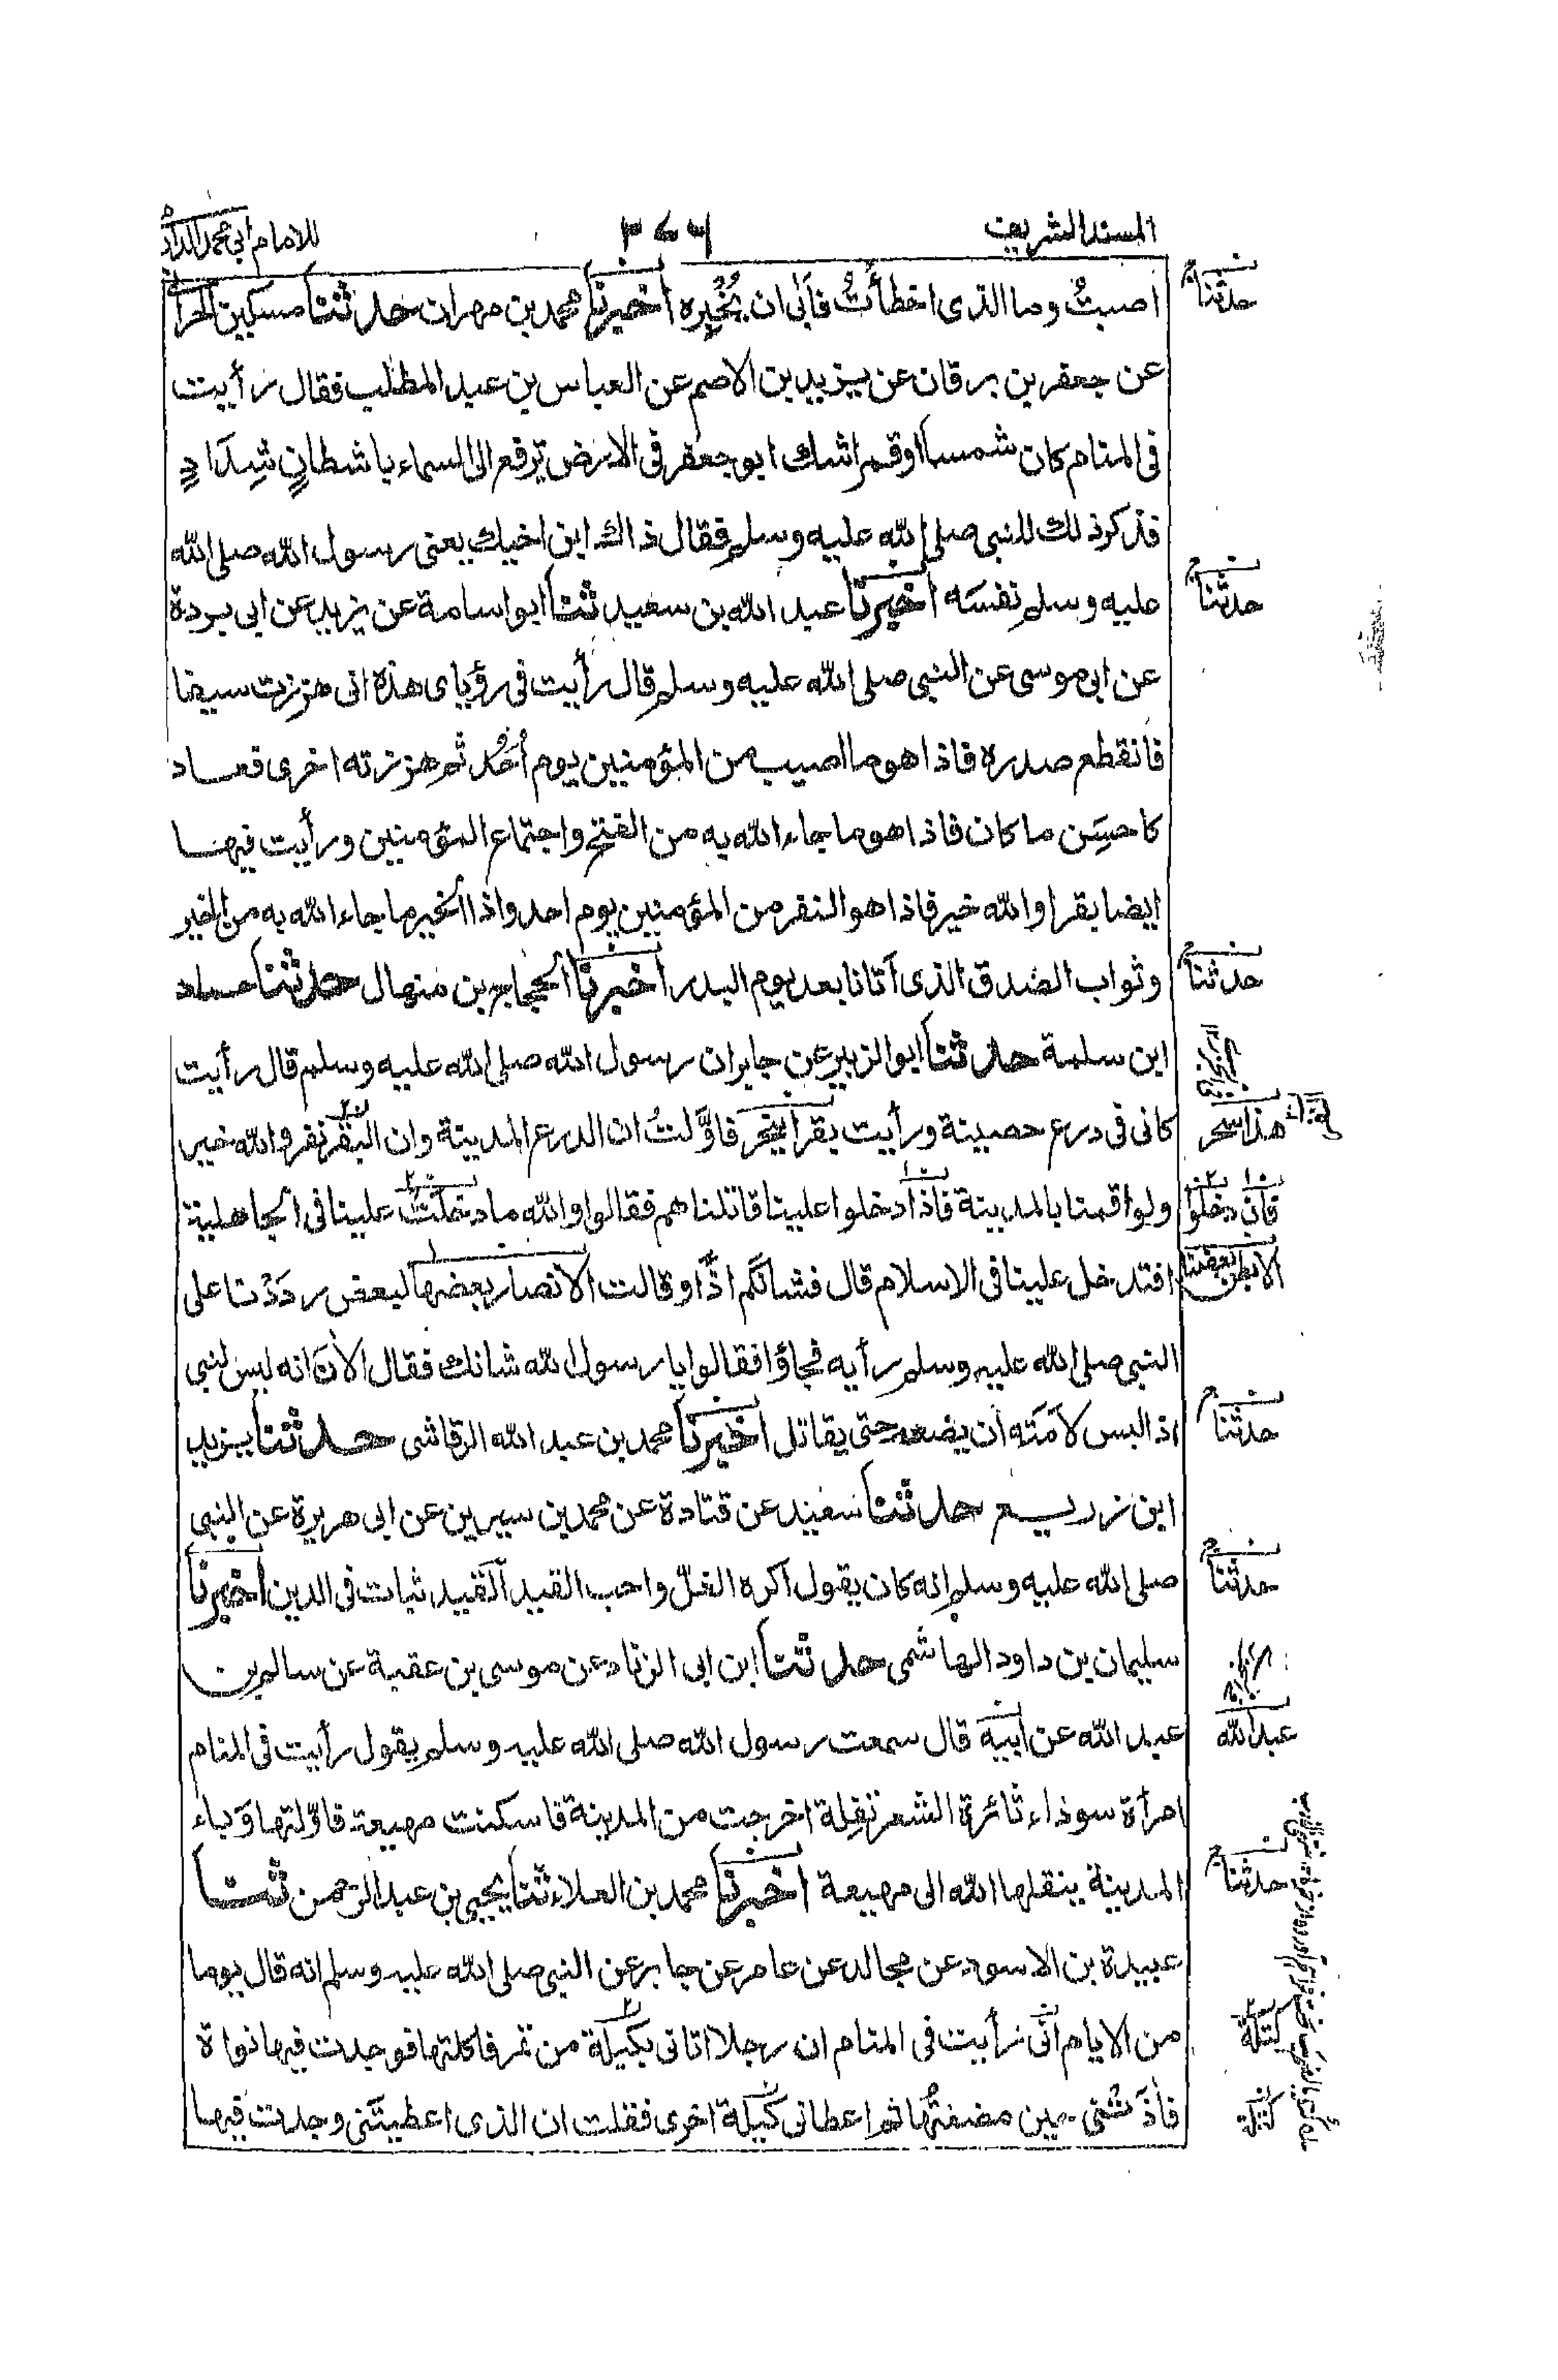 المسند الشريف
٢٧٦
للامام ابي محمد الدار
اصبتُ وما الذى اخطأتُ فأبى ان يُخْبِره اخبرنا محمد بن مهران حدثنا مسكين الحرا
عن جعفر بن برقان عن يزيد بن الاصم عن العباس بن عبد المطلب فقال رأيت
فى المنام كان شمسا اوقمرا شك ابو جعفر فى الارض ترفع الى السماء باشطانٍ شِدَادٍ
فذكر ذلك للنبى صلى الله عليه وسلم فقال ذاك ابن اخيك يعنى رسول الله صلى الله
عليه وسلم نفسَه اخبرنا عبد الله بن سعيد ثنا ابواسامة عن يزيد عن ابى بردة
عن ابى موسى عن النبى صلى الله عليه وسلم قال رأيت فى رؤياى هذه انى هززت سيفا
فانقطع صدره فاذا هو ما اصيب من المؤمنين يوم أُحُد ثم هززته اخرى فعاد
كاحسَن ما كان فاذا هو ما جاء الله به من الفتح واجتماع المؤمنين ورأيت فيها
ايضا بقرا والله خير فاذا هو النفر من المؤمنين يوم احد واذا الخير ما جاء الله به من الخير
وثواب الصدق الذى آتانا بعد يوم البدر اخبرنا الحجاج بن منهال حدثنا حماد
ابن سلمة حدثنا ابو الزبير عن جابر ان رسول الله صلى الله عليه وسلم قال رأيت
كانى فى درع حصينة ورأيت بقرا ينحر فاوَّلتُ ان الدرع المدينة وان البقر نفر والله خير
ولو اقمنا بالمدينة فاذا دخلوا علينا قاتلناهم فقالوا والله ما دخلت علينا فى الجاهلية
افتدخل علينا فى الاسلام قال فشانكم اذًا وقالت الانصار بعضها لبعض رددنا على
النبى صلى الله عليه وسلم رأيه فجاؤا فقالوا يا رسول الله شانك فقال الآن انه ليس لنبى
اذا لبس لأمَتَه ان يضعه حتى يقاتل اخبرنا محمد بن عبد الله الرقاشى حدثنا يزيد
ابن زريع حدثنا سعيد عن قتادة عن محمد بن سيرين عن ابى هريرة عن النبى
صلى الله عليه وسلم انه كان يقول اكره الغلّ واحب القيد القيد ثبات فى الدين اخبرنا
سليمان بن داود الهاشمى حدثنا ابن ابى الزناد عن موسى بن عقبة عن سالم بن
عبد الله عن ابيه قال سمعت رسول الله صلى الله عليه وسلم يقول رأيت فى المنام
امرأة سوداء ثائرة الشعر تفِلة اخرجت من المدينة فاسكنت مهيعة فاوّلتها وَباء
المدينة ينقلها الله الى مهيعة اخبرنا محمد بن العلاء ثنا يحيى بن عبد الرحمن ثنا
عبيدة بن الاسود عن مجالد عن عامر عن جابر عن النبى صلى الله عليه وسلم انه قال يوما
من الايام انّى رأيت فى المنام ان رجلا اتانى بكيلة من تمر فاكلتها فوجدت فيها نواة
فآذتنى حين مضغتُها ثم اعطانى كيلة اخرى فقلت ان الذى اعطيتَنى وجدت فيها
حدثنا
حدثنا
حدثنا
هذا سحر
فان دخلوا
حدثنا
حدثنا
عبد الله
حدثنا
كتلة
كتلة